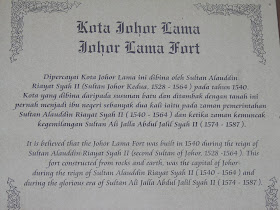 Kota Johor Lama
Johor Lama Fort
Dipercayai Kota Johor Lama ini dibina oleh Sultan Alauddin
Riayat Syah II (Sultan Johor Kedua, 1528 - 1564 ) pada tahun 1540.
Kota yang dibina daripada susunan batu dan ditambak dengan tanah ini
pernah menjadi ibu negeri sebanyak dua kali iaitu pada zaman pemerintahan
Sultan Alauddin Riayat Syah II ( 1540 - 1564 ) dan ketika zaman kemuncak
kegemilangan Sultan Ali Jalla Abdul Jalil Syah II ( 1574 - 1587 ).
It is believed that the Johor Lama Fort was built in 1540 during the reign of
Sultan Alauddin Riayat Syah II (second Sultan of Johor, 1528 -1564 ). This
fort constructed from rocks and earth, was the capital of Johor
during the reign of Sultan Alauddin Riayat Syah II ( 1540 - 1564 ) and
during the glorious era of Sultan Ali Jalla Abdul Jalil Syah II ( 1574 - 1587 ).